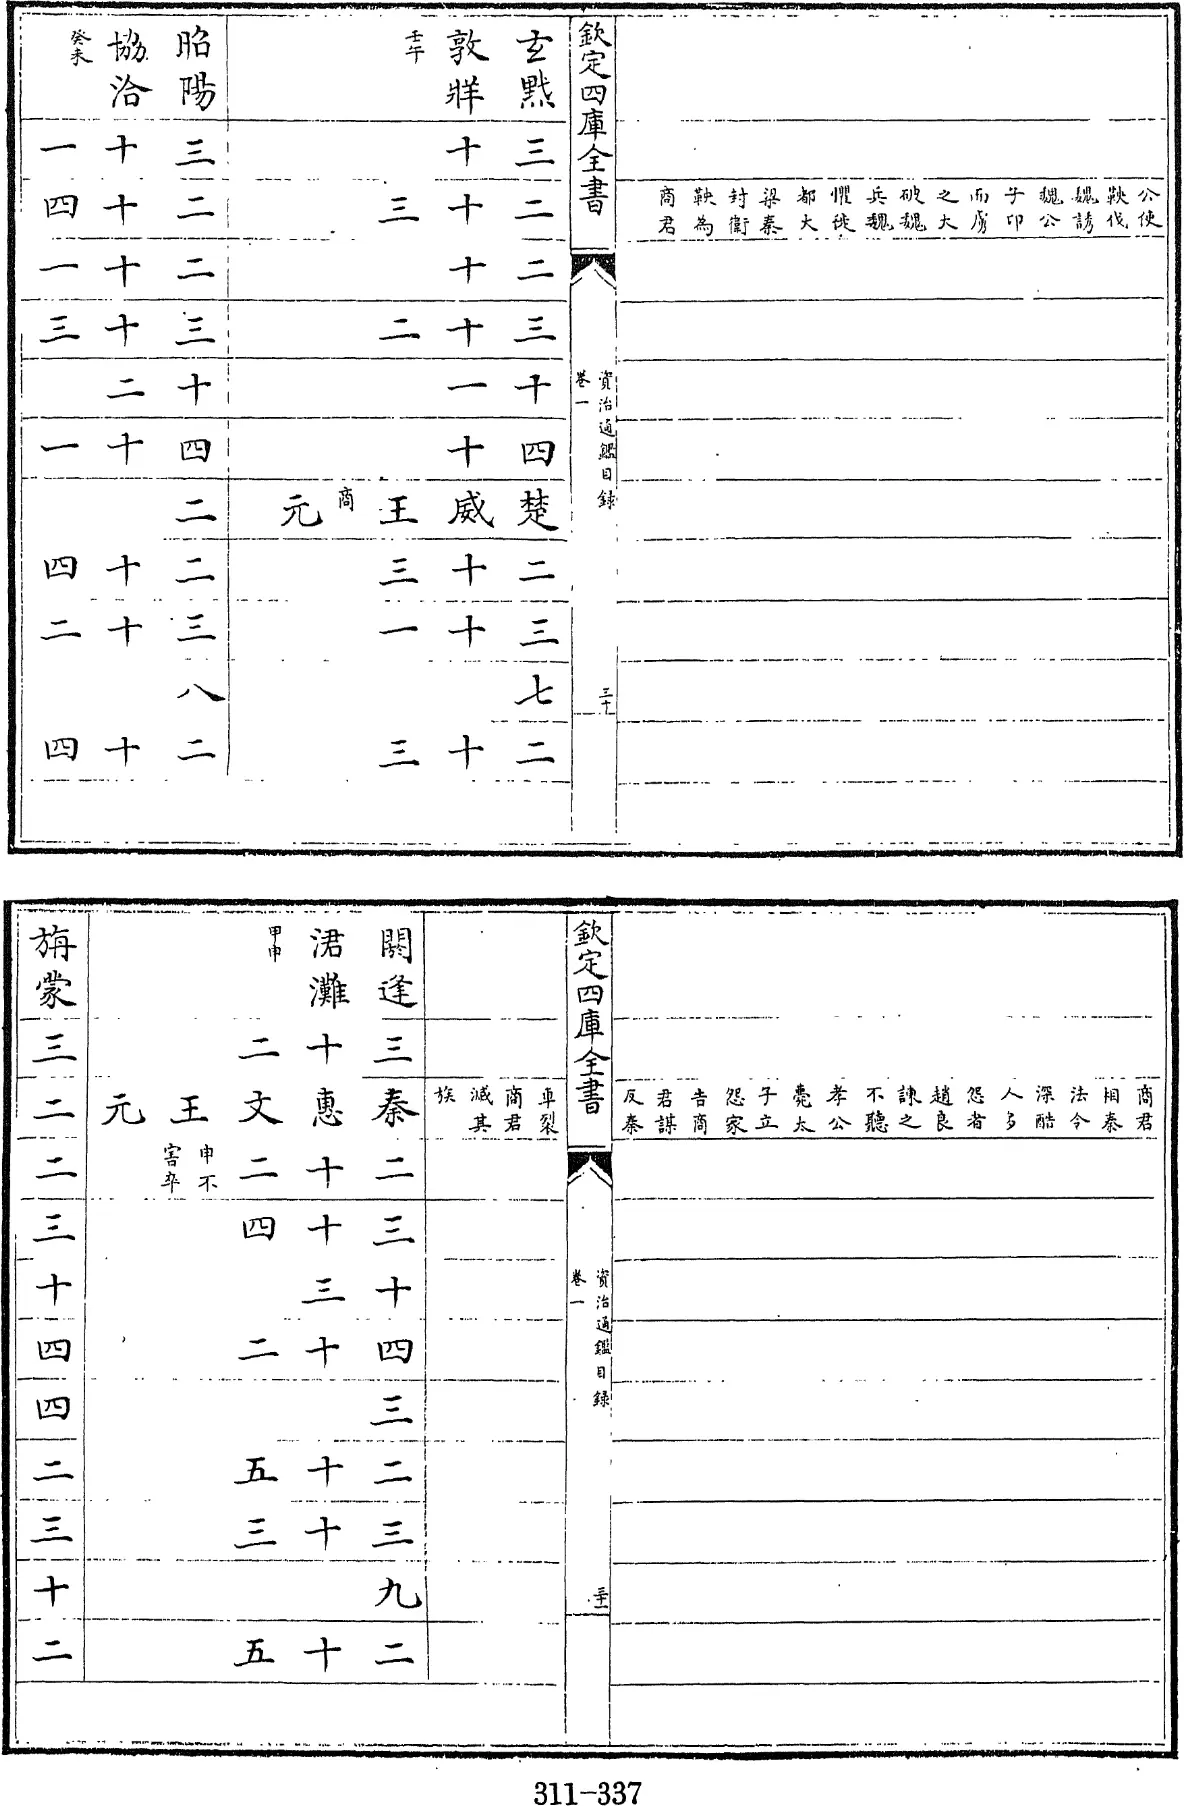 公使鞅伐魏誘魏公子卬而虜之大破魏兵魏懼徙都大梁秦封衛鞅為商君
欽定四庫全書
資治通鑑目録
卷一
三十
玄黓敦牂
壬午
三十
二十三
二十
三十二
十一
四十
楚威王商元
二十三
三十一
七
二十三
昭陽協洽
癸未
三十一
二十四
二十一
三十三
十二
四十一
二
二十四
三十二
八
二十四
商君相秦法令深酷人多怨者趙良諫之不聽孝公薨太子立怨家告商君謀反秦
欽定四庫全書
資治通鑑目録
卷一
三十一
車裂商君滅其族
閼逢涒灘
甲申
三十二
秦惠文王元
二十二
申不害卒
三十四
十三
四十二
三
二十五
三十三
九
二十五
旃蒙
三
二
二
三
十
四
四
二
三
十
二
311-337